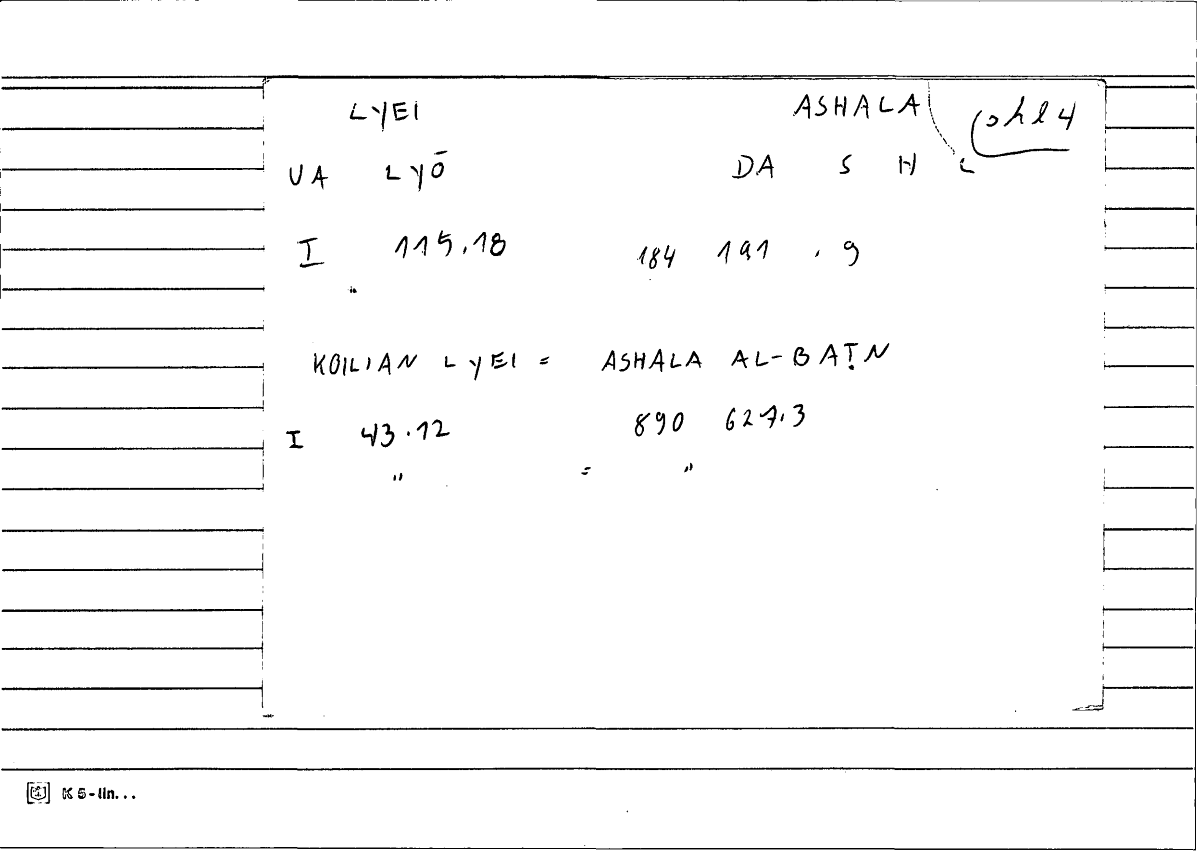 LYEI ASHALA
UA LYŌ DA S H L
I 115.18 184 191 . 9
"
KOILIAN LYEI = ASHALA AL-BAṬN
I 43.12 890 627.3
" = "
K 5-lin...